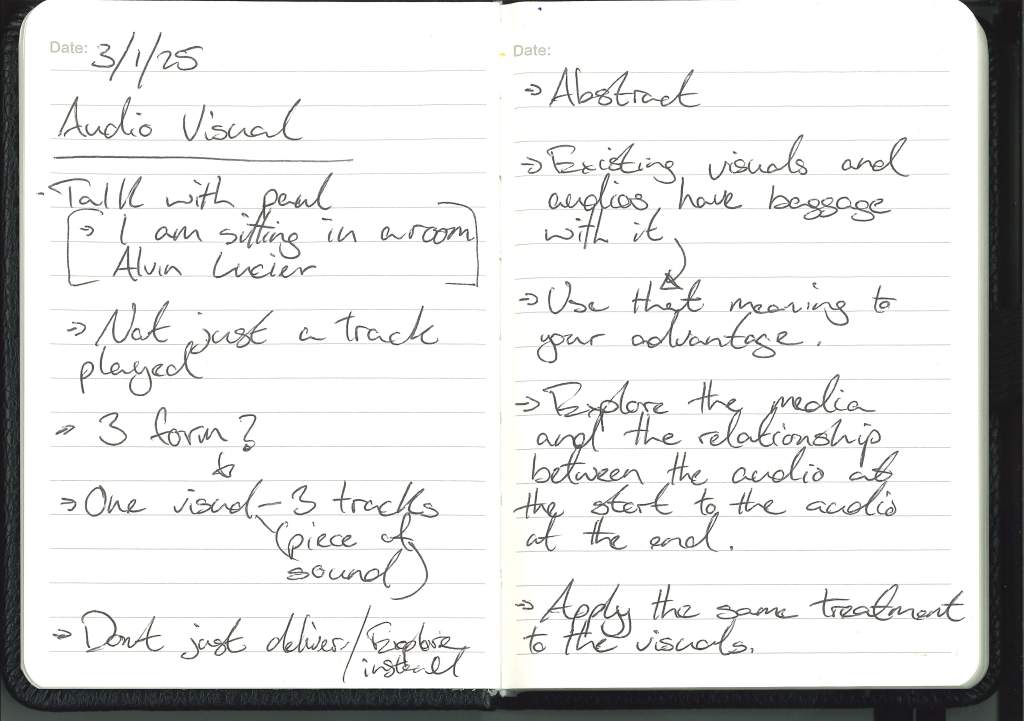 Date: 3/1/25
Audio Visual
- Talk with paul
→ I am sitting in a room
Alvin Lucier
→ Not just a track
played
→ 3 form?
→ One visual - 3 tracks
(piece of
sound)
→ Dont just deliver/Explore
instead
Date:
→ Abstract
→ Existing visuals and
audios have baggage
with it
→ Use that meaning to
your advantage.
→ Explore the media
and the relationship
between the audio at
the start to the audio
at the end.
→ Apply the same treatment
to the visuals.